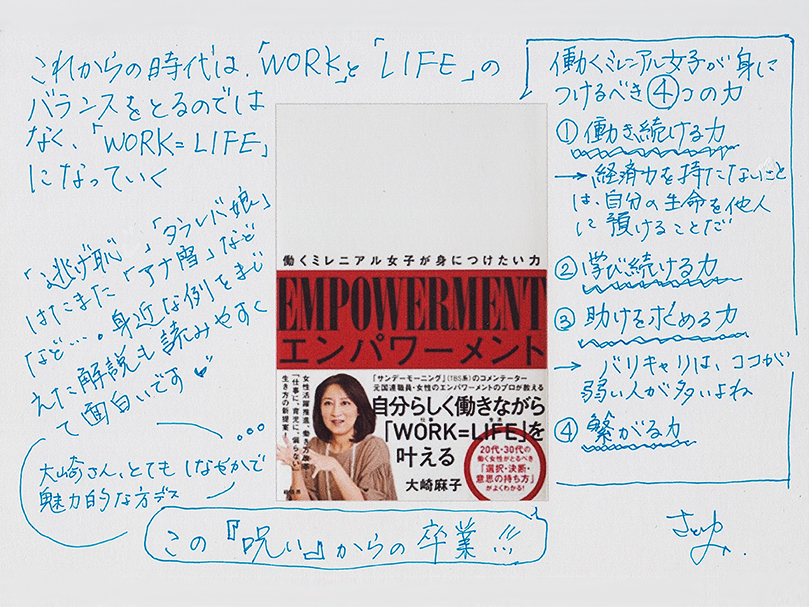 これからの時代は、「WORK」と「LIFE」の
バランスをとるのでは
なく、「WORK=LIFE」
になっていく
「逃げ恥」「タラレバ娘」
はたまた「アナ雪」など
など…。身近な例をまじ
えた解説も読みやすく
て面白いです
大崎さん、とてもしなやかで
魅力的な方デス
働くミレニアル女子が身につけたい力
EMPOWERMENT
エンパワーメント
「サンデーモーニング」(TBS系)のコメンテーター
元国連職員・女性のエンパワーメントのプロが教える
自分らしく働きながら
「WORK=LIFE」を
叶える
大崎麻子
女性活躍推進、働き方改革
「仕事に、育児に、偏らない」
生き方の新提案!
20代・30代の
働く女性がとるべき
「選択・決断・
意思の持ち方」
がよくわかる!
経済界
この『呪い』からの卒業!!!
働くミレニアル女子が身に
つけるべき④コの力
①働き続ける力
→経済力を持たないこと
は、自分の生命を他人
に預けることだ
②学び続ける力
③助けを求める力
→バリキャリは、ココが
弱い人が多いよね
④繋がる力